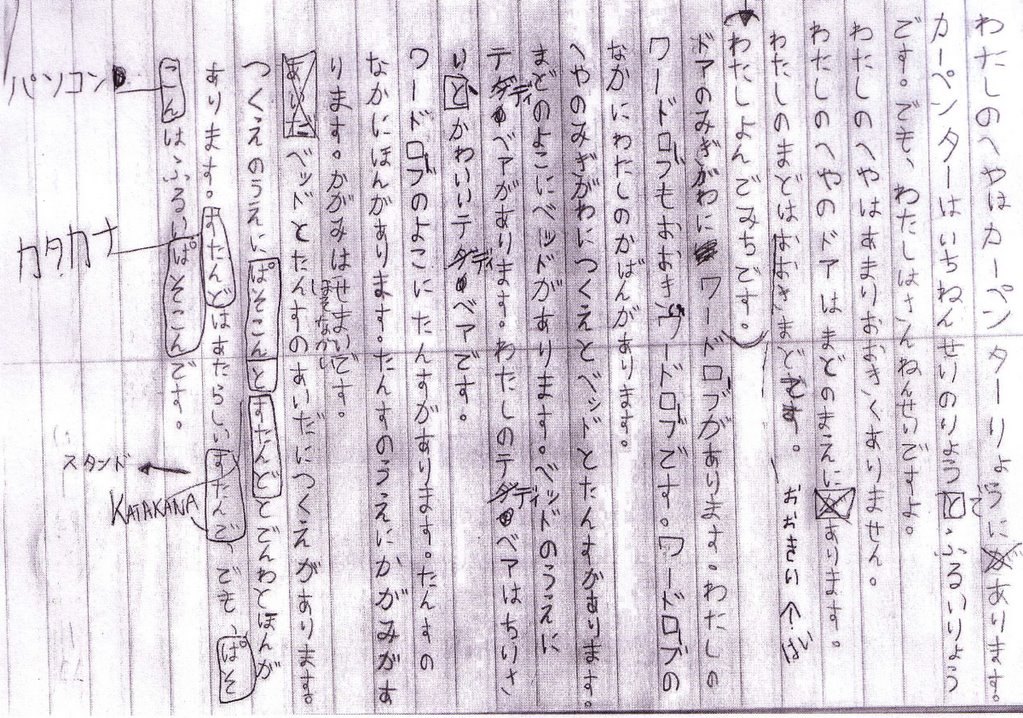 わたしのへやはカーペンターりょうにあります。
カーペンターはいちねんせいのりょうと、ふるいりょう
です。でも、わたしはさんねんせいですよ。
わたしのへやはあまりおおきくありません。
わたしのへやのドアはまどのまえにあります。
わたしのまどはおおきまどです。
おおきい ↑ はい
わたしよんでみちです。
ドアのみぎがわにワードロブがあります。わたしの
ワードロブもおおきワードロブです。ワードロブの
なかにわたしのかばんがあります。
へやのみぎがわにつくえとベッドとたんすがあります。
まどのよこにベッドがあります。ベッドのうえに
テディベアがあります。わたしのテディベアはちいさ
いと、かわいいテディベアです。
ワードロブのよこにたんすがあります。たんすの
なかにほんがあります。たんすのうえにかがみがあ
ります。かがみはせまいです。
ほそながい
ベッドとたんすのあいだにつくえがあります。
つくえのうえにぱそこんとすたんどとでんわとほんが
あります。すたんどはあたらしいすたんで、でも、ぱそ
こんは、ふるいぱそこんです。
パソコン
カタカナ
スタンド
KATAKANA